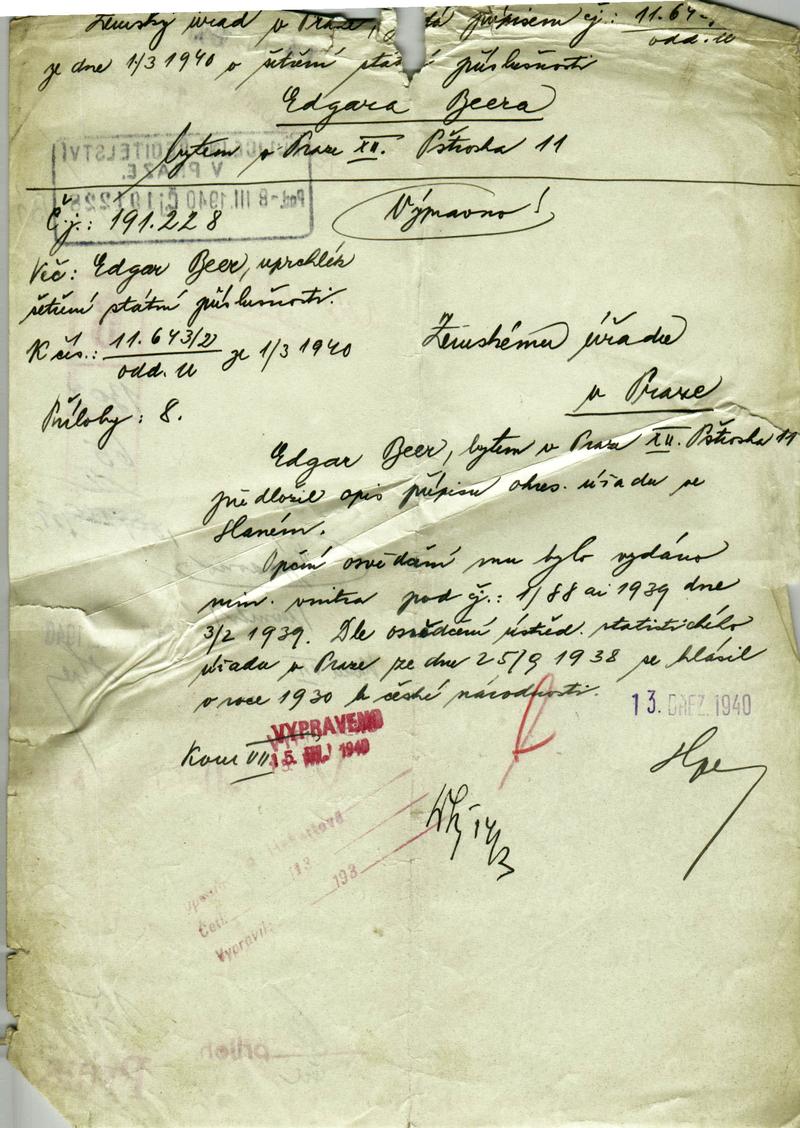 Zemský úřad v Praze, žádá přípisem čj.: 11.64
odd. U
ze dne 1/3 1940 o šetření státní příslušnosti
Edgara Beera
bytem v Praze XII. Pštroska 11
Č.j.: 191.228
Výpravno!
Věc: Edgar Beer, uprchlík
šetření státní příslušnosti.
K čís.: 11.643/2 ze 1/3 1940
odd. U
Zemskému úřadu
v Praze
Přílohy: 8.
Edgar Beer, bytem v Praze XII. Pštroska 11
předložil opis přípisu okres. úřadu ve
Slaném.
Opční osvědčení mu bylo vydáno
min. vnitra pod čj.: 1/88 ai 1939 dne
3/2 1939. Dle osvědčení ústřed. statistického
úřadu v Praze ze dne 25/9 1938 se hlásil
v roce 1930 k české národnosti.
13. BŘEZ. 1940
VYPRAVENO
15. III. 1940
14/3
193
Četl:
Vypravil: